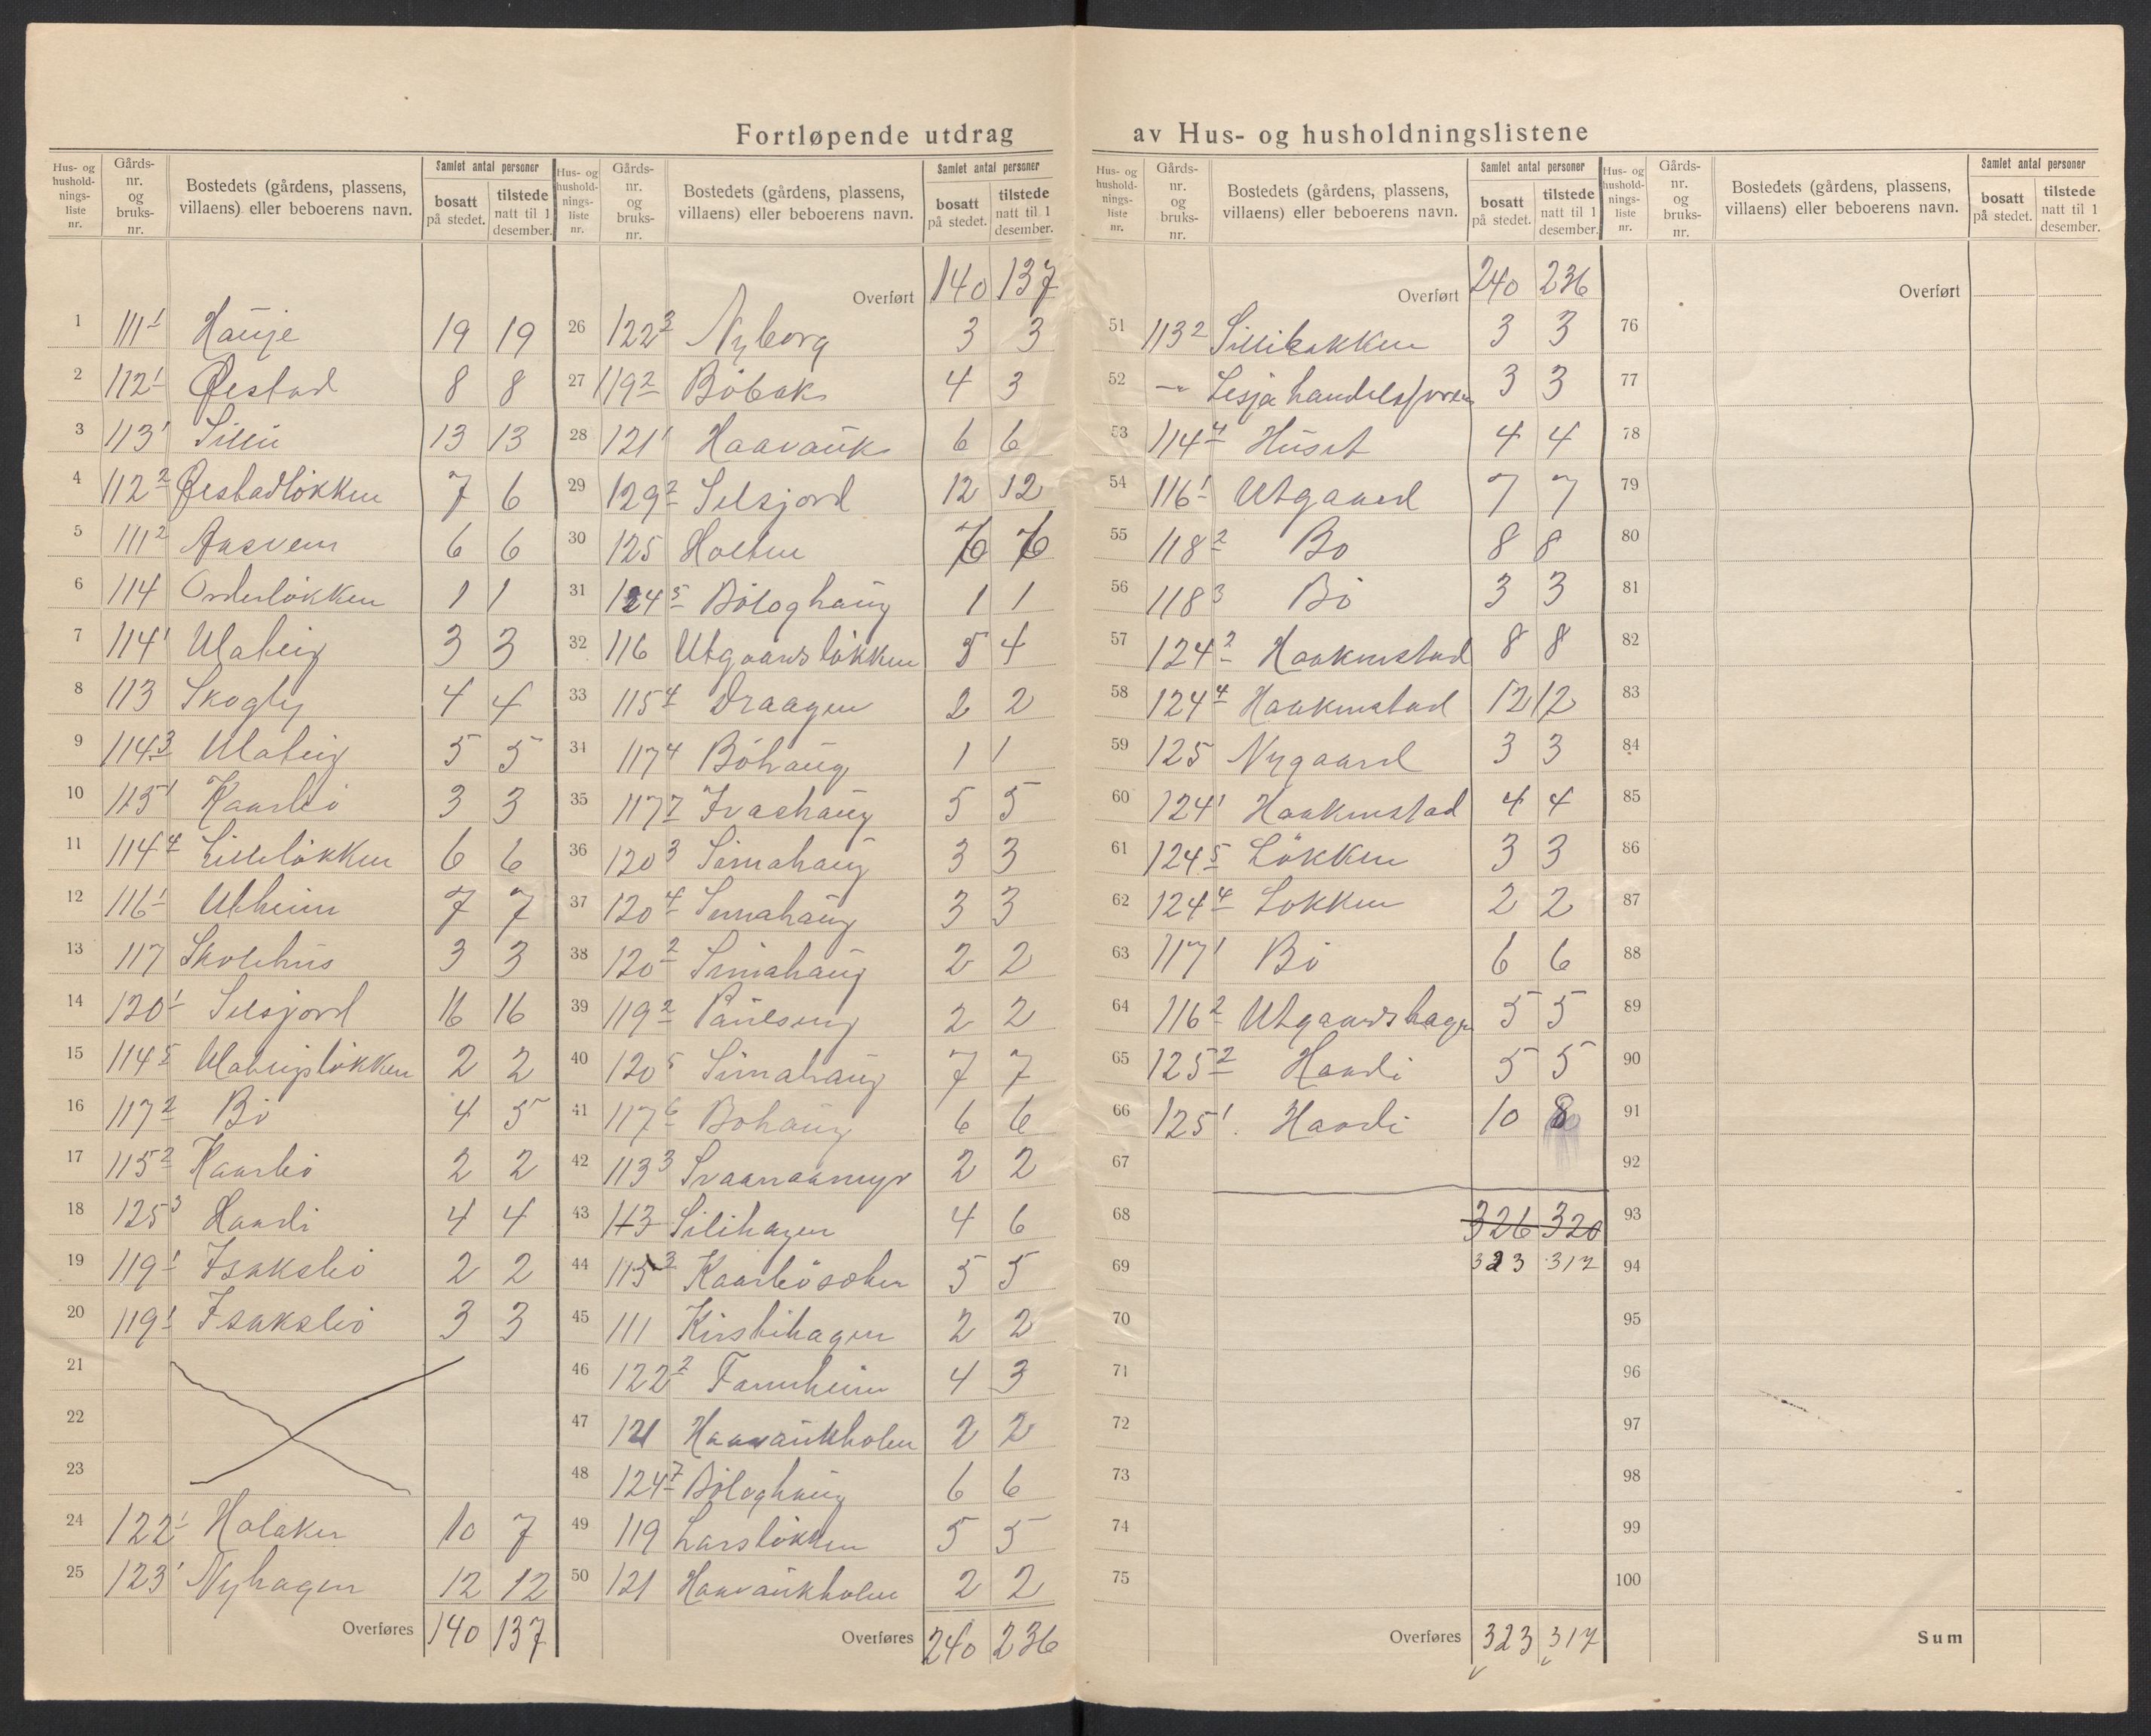 Fortløpende utdrag av Hus- og husholdningslistene
Hus- og hushold-nings-liste nr. | Gårds-nr. og bruks-nr. | Bostedets (gårdens, plassens, villaens) eller beboerens navn. | Samlet antal personer | bosatt på stedet. | tilstede natt til 1 desember.
1 111¹ Hauje 19 19
2 112¹ Øestad 8 8
3 113¹ Silli 13 13
4 112² Øestadløkken 7 6
5 111² Aasvem 6 6
6 114 Orderløkken 1 1
7 114¹ Ulateig 3 3
8 113 Skogly 4 4
9 114³ Ulateig 5 5
10 115¹ Kaarbø 3 3
11 114⁴ Lilleløkken 6 6
12 116¹ Utheim 7 7
13 117 Skolehus 3 3
14 120¹ Selsjord 16 16
15 114⁵ Ulateigsløkken 2 2
16 117² Bö 4 5
17 115² Kaarbö 2 2
18 125³ Haardi 4 4
19 119¹ Isaksbö 2 2
20 119¹ Isaksbö 3 3
21
22
23
24 122¹ Holaker 10 7
25 123¹ Nyhagen 12 12
Overføres 140 137
Hus- og hushold-nings-liste nr. | Gårds-nr. og bruks-nr. | Bostedets (gårdens, plassens, villaens) eller beboerens navn. | Samlet antal personer | bosatt på stedet. | tilstede natt til 1 desember.
Overført 140 137
26 122³ Nyborg 3 3
27 119² Böbak 4 3
28 121¹ Haavauk 6 6
29 129² Selsjord 12 12
30 125 Holten 6 6
31 124⁵ Böloghaug 1 1
32 116 Utgaardsløkken 5 4
33 115⁴ Draagen 2 2
34 117⁴ Böhaug 1 1
35 117⁷ Ivashaug 5 5
36 120³ Simahaug 3 3
37 120⁴ Simahaug 3 3
38 120² Simahaug 2 2
39 119² Paulseng 2 2
40 120⁵ Simahaug 7 7
41 117⁶ Bohaug 6 6
42 113³ Svaanaamyr 2 2
43 113 Silihagen 4 6
44 115³ Kaarbösæter 5 5
45 111 Kirstihagen 2 2
46 122² Fannheim 4 3
47 121 Haavaukholen 2 2
48 124⁷ Böloghaug 6 6
49 119 Larsløkken 5 5
50 121 Haavaukholen 2 2
Overføres 240 236
Hus- og hushold-nings-liste nr. | Gårds-nr. og bruks-nr. | Bostedets (gårdens, plassens, villaens) eller beboerens navn. | Samlet antal personer | bosatt på stedet. | tilstede natt til 1 desember.
Overført 240 236
51 113² Sillibakken 3 3
52 —"— Lesja handelsforen 3 3
53 114⁴ Huset 4 4
54 116¹ Utgaard 7 7
55 118² Bo 8 8
56 118³ Bö 3 3
57 124² Haakenstad 8 8
58 124⁴ Haakenstad 12 12
59 125 Nygaard 3 3
60 124¹ Haakenstad 4 4
61 124⁵ Løkken 3 3
62 124⁴ Lokken 2 2
63 117¹ Bö 6 6
64 116² Utgaardshagen 5 5
65 125² Haardi 5 5
66 125¹ Haardi 10 8
67
68 326 320
69 323 317
70
71
72
73
74
75
Overføres 323 317
Hus- og hushold-nings-liste nr. | Gårds-nr. og bruks-nr. | Bostedets (gårdens, plassens, villaens) eller beboerens navn. | Samlet antal personer | bosatt på stedet. | tilstede natt til 1 desember.
Overført
76
77
78
79
80
81
82
83
84
85
86
87
88
89
90
91
92
93
94
95
96
97
98
99
100
Sum